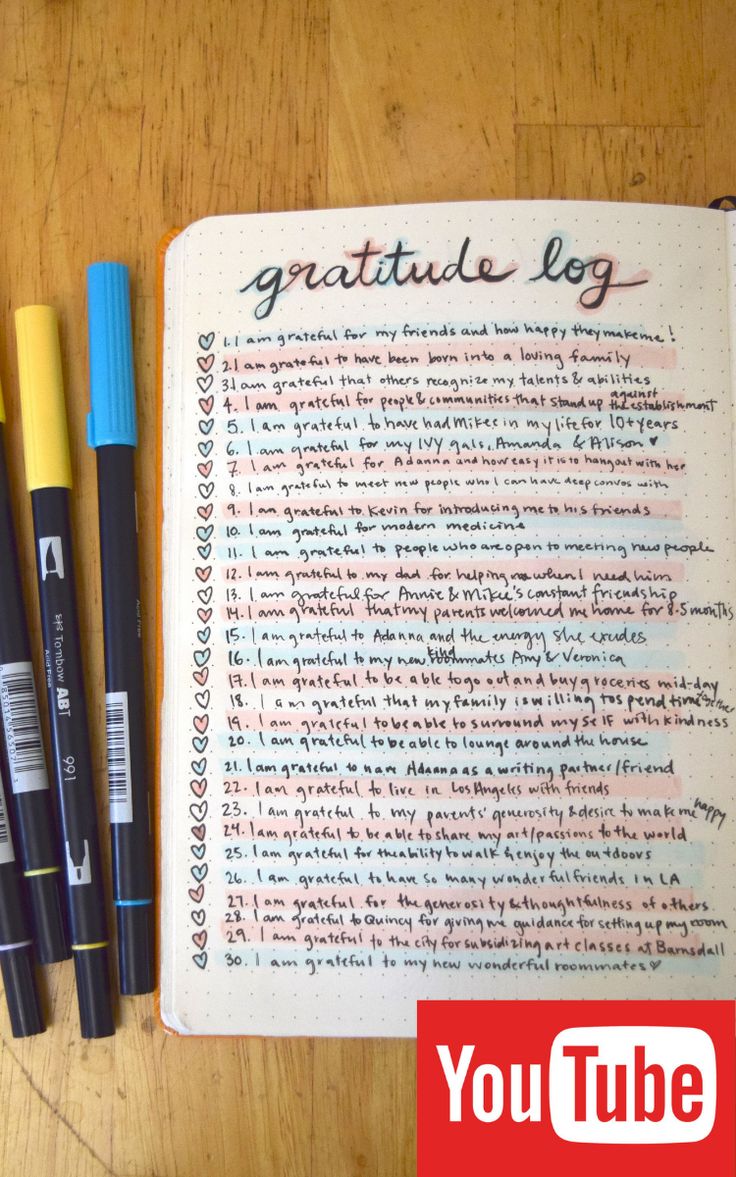 gratitude log
1. I am grateful for my friends and how happy they make me!
2. I am grateful to have been born into a loving family
3. I am grateful that others recognize my talents & abilities
4. I am grateful for people & communities that stand up against the establishment
5. I am grateful to have had Mikee in my life for 10+ years
6. I am grateful for my IVY gals, Amanda & Alison ♥
7. I am grateful for Adanna and how easy it is to hang out with her
8. I am grateful to meet new people who I can have deep convos with
9. I am grateful to Kevin for introducing me to his friends
10. I am grateful for modern medicine
11. I am grateful to people who are open to meeting new people
12. I am grateful to my dad for helping me when I need him
13. I am grateful for Annie & Mikee's constant friendship
14. I am grateful that my parents welcomed me home for 8.5 months
15. I am grateful to Adanna and the energy she exudes
16. I am grateful to my new kind roommates Amy & Veronica
17. I am grateful to be able to go out and buy groceries mid-day
18. I am grateful that my family is willing to spend time together
19. I am grateful to be able to surround myself with kindness
20. I am grateful to be able to lounge around the house
21. I am grateful to have Adanna as a writing partner/friend
22. I am grateful to live in Los Angeles with friends
23. I am grateful to my parents' generosity & desire to make me happy
24. I am grateful to be able to share my art/passions to the world
25. I am grateful for the ability to walk & enjoy the outdoors
26. I am grateful to have so many wonderful friends in LA
27. I am grateful for the generosity & thoughtfulness of others
28. I am grateful to Quincy for giving me guidance for setting up my room
29. I am grateful to the city for subsidizing art classes at Barnsdall
30. I am grateful to my new wonderful roommates ♡
Tombow ABT
Acid Free
991
Acid Free
YouTube